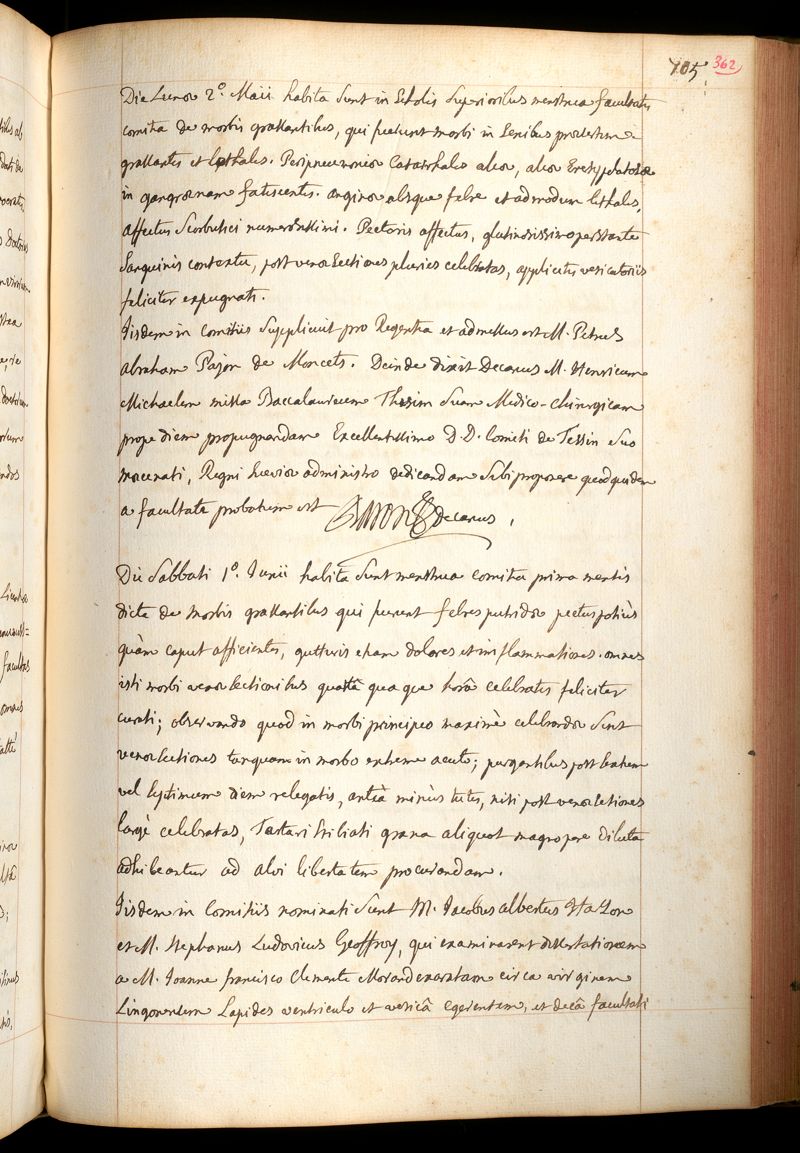 705 362
Die Lunæ 2º. Maii habita sunt in Scholis Superioribus menstrua facultatis
comitia de morbis grassantibus, qui fuerunt morbi in Senibus præsertim
grassantes et lethales. Peripneumoniæ Catarrhales aliæ, aliæ Eresypelatosæ
in gangrænam fatiscentes. anginæ absque febre et admodum lethales,
affectus Scorbutici numerosissimi. Pectoris affectus, glutinosissimo perstante
Sanguinis contextu, post venæ Sectiones pluries celebratas, applicitis vesicatoriis
feliciter expugnati.
Iisdem in comitiis Supplicuit pro Regentia et admissus est M. Petrus
abraham Pajon de Moncets. Deinde dixit Decanus M. Henricum
Michaelem missa Baccalaureum Thesim Suam Medico-chirurgicam
prope diem propugnandam Excellentissimo D D. Comiti de Tessin Suo
mœcenati, Regni Sueciæ administro dedicandam Sibi proponere quod quidem
a facultate probatum est Baron Decanus.
Die Sabbati 1º. Junii habita Sunt menstrua comitia prima mensis
dicta de morbis grassantibus qui fuerunt febres putridæ pectus potiùs
quàm caput afficientes, gutturis etiam dolores et inflammationes. omnes
isti morbi venæ sectionibus quartâ quaque horâ celebratis feliciter
curati; observando quod in morbi principio maximè celebrandæ Sint
venæ sectiones tanquam in morbo extreme acuto; purgantibus post sextum
vel septimum diem relegatis, anteà minùs tutis, nisi post venæ sectiones
largè celebratas, Tartari stibiati grana aliquot magnopere diluta
adhibeantur ad alvi libertatem procurandam.
Iisdem in Comitiis nominati Sunt M. Jacobus albertus Hazon
et M. Stephanus Ludovicus Geoffroy, qui examinarent dissertationem
a M. Joanne francisco Clemente Morand exaratam circa virginem
Lingonensem Lapides ventriculo et vesicâ egerentem, et de eâ facultati